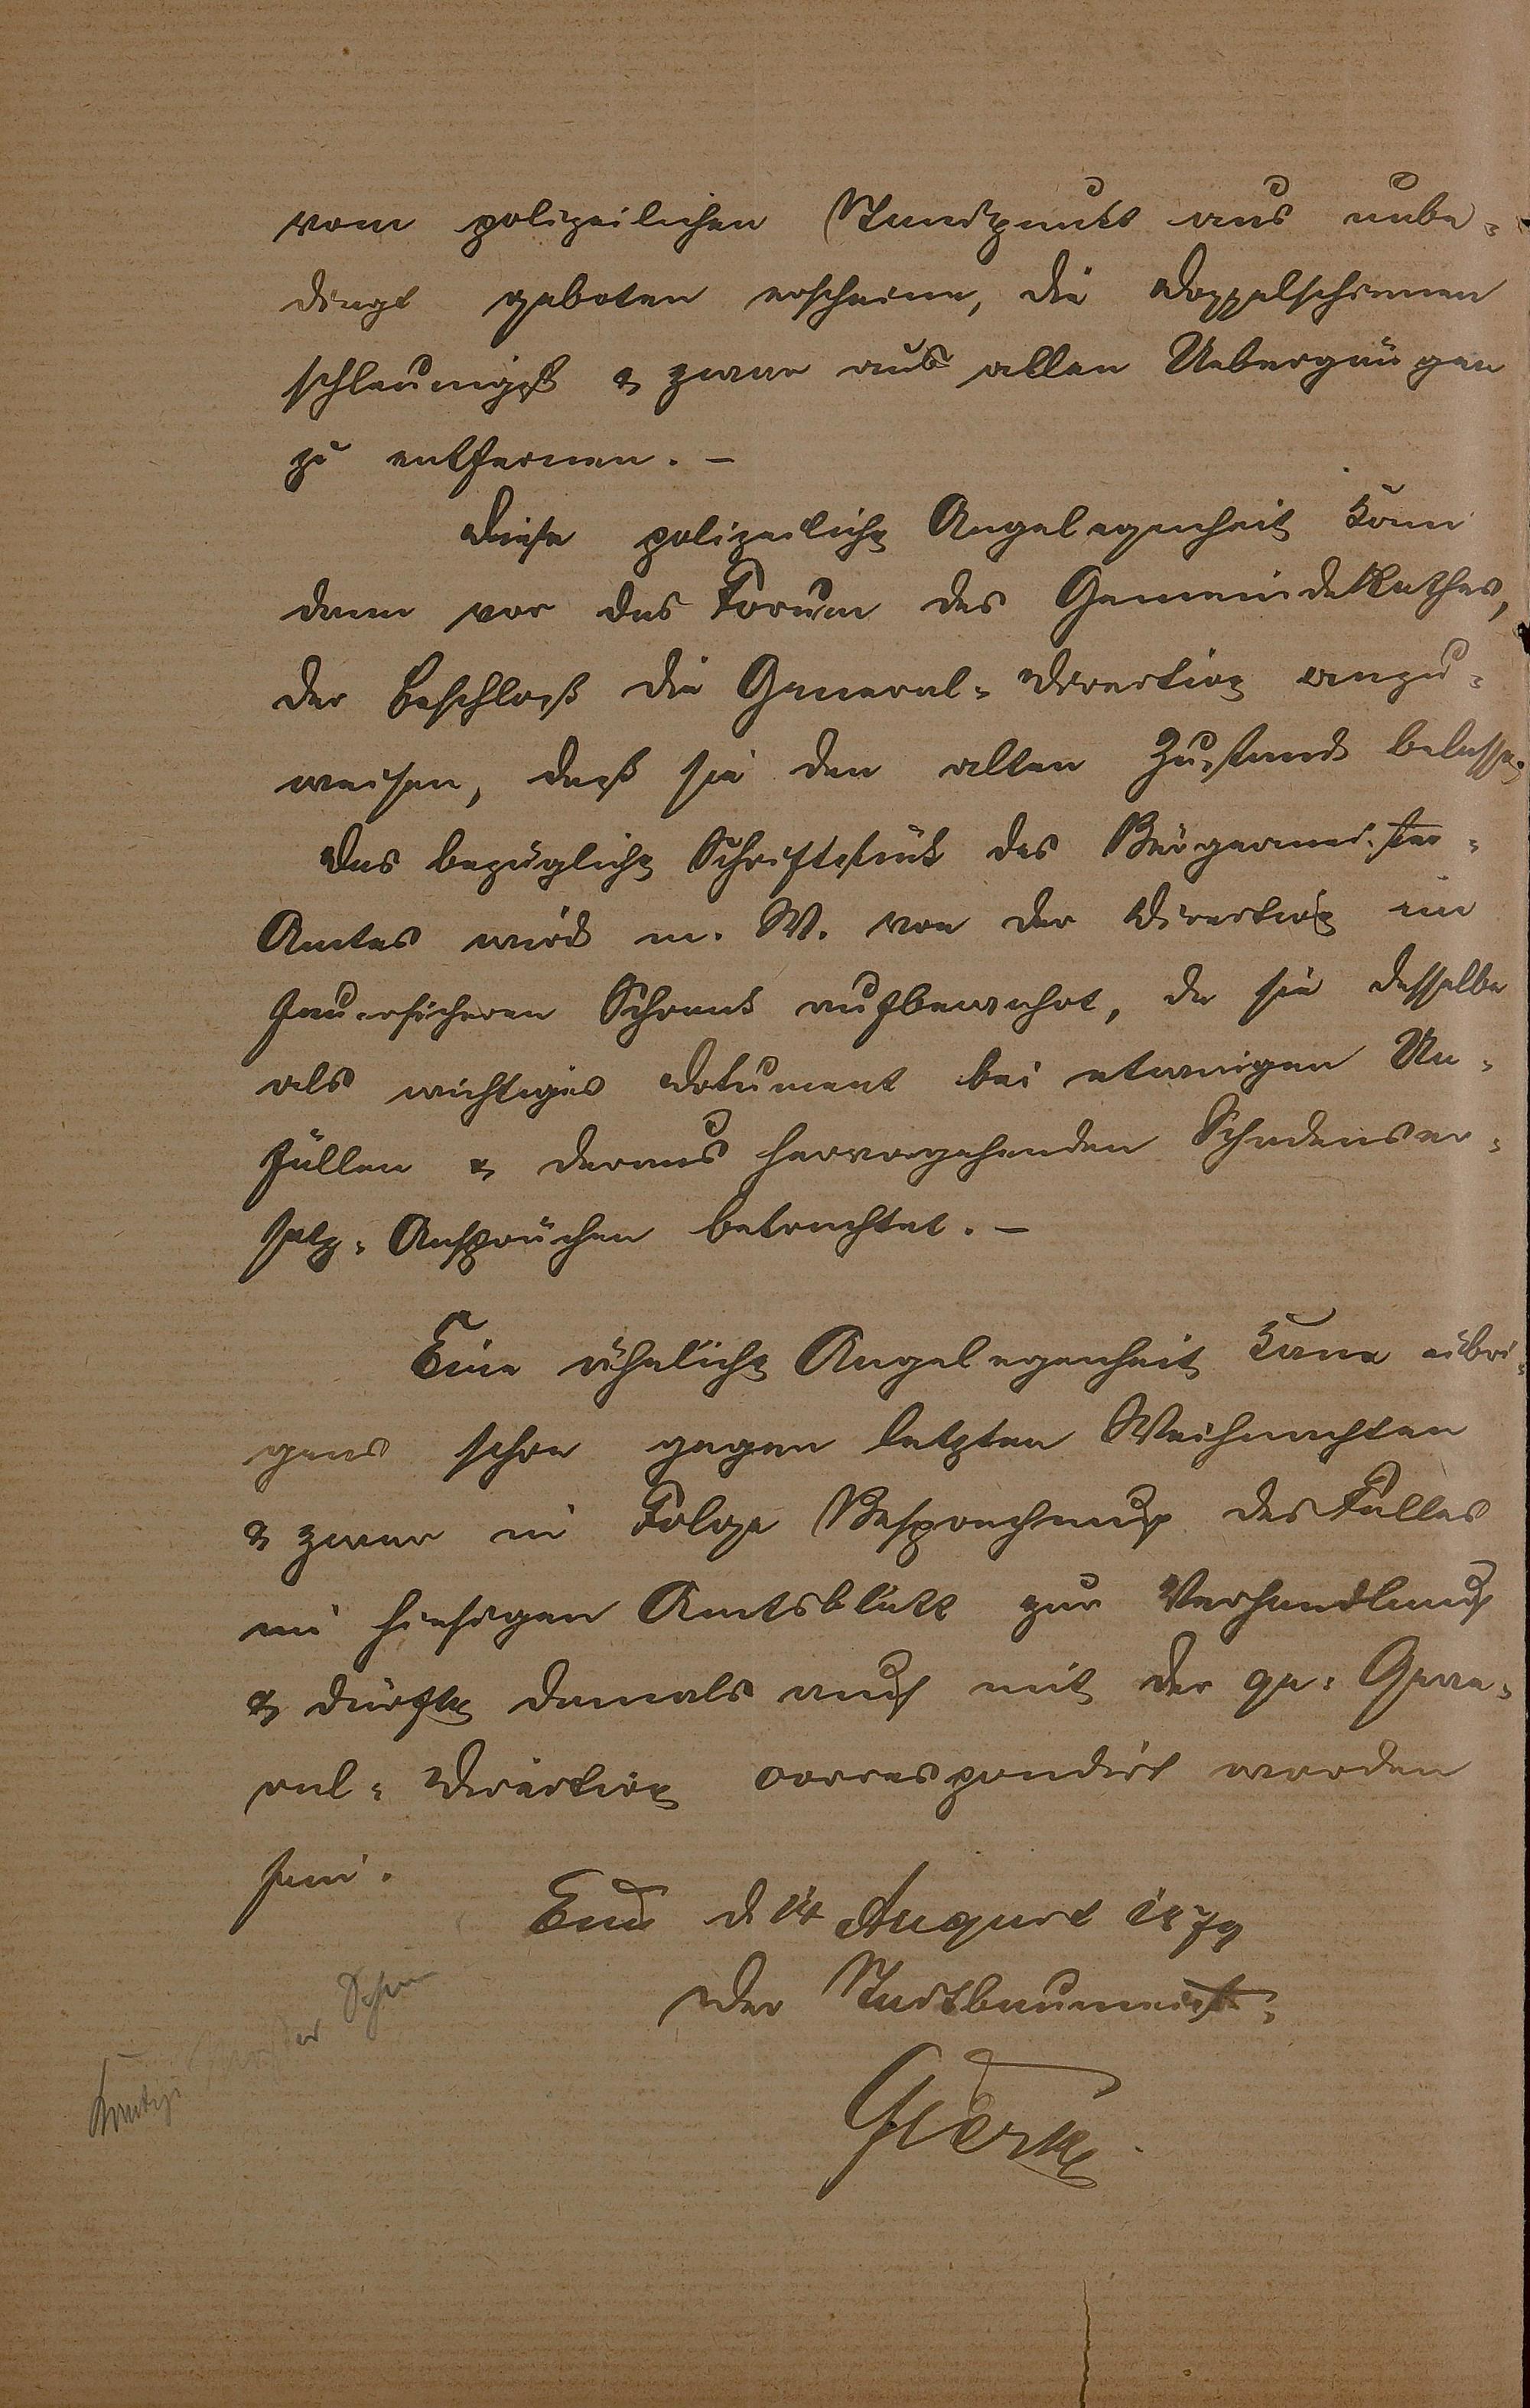 vom polizeilichen Standpunkt aus unbe-
dingt geboten erscheine, die Doppelschienen
schleunigst & zwar aus allen Uebergängen
zu entfernen. –
Diese polizeiliche Angelegenheit kam
dann vor das Forum des GemeindeRathes,
der beschloß die General-Direction anzu-
weisen, daß sie den alten Zustand belasse.
Das bezügliche Schriftstück des Bürgermeister-
Amtes wird m. W. von der Direction im
feuersicheren Schrank aufbewahrt, da sie dasselbe
als wichtiges Dokument bei etwaigen Un-
fällen & daraus hervorgehenden Schadenser-
satz-Ansprüchen betrachtet. –
Eine ähnliche Angelegenheit kam übri-
gens schon gegen letzten Weihnachten
& zwar in Folge Besprechnung des Falles
im hiesigen Amtsblatt zur Verhandlung
& dürfte damals auch mit der gr: Gene-
ral-Direction correspondirt worden
sein.
d 14 August 1879
Der Stadtbaumeist: